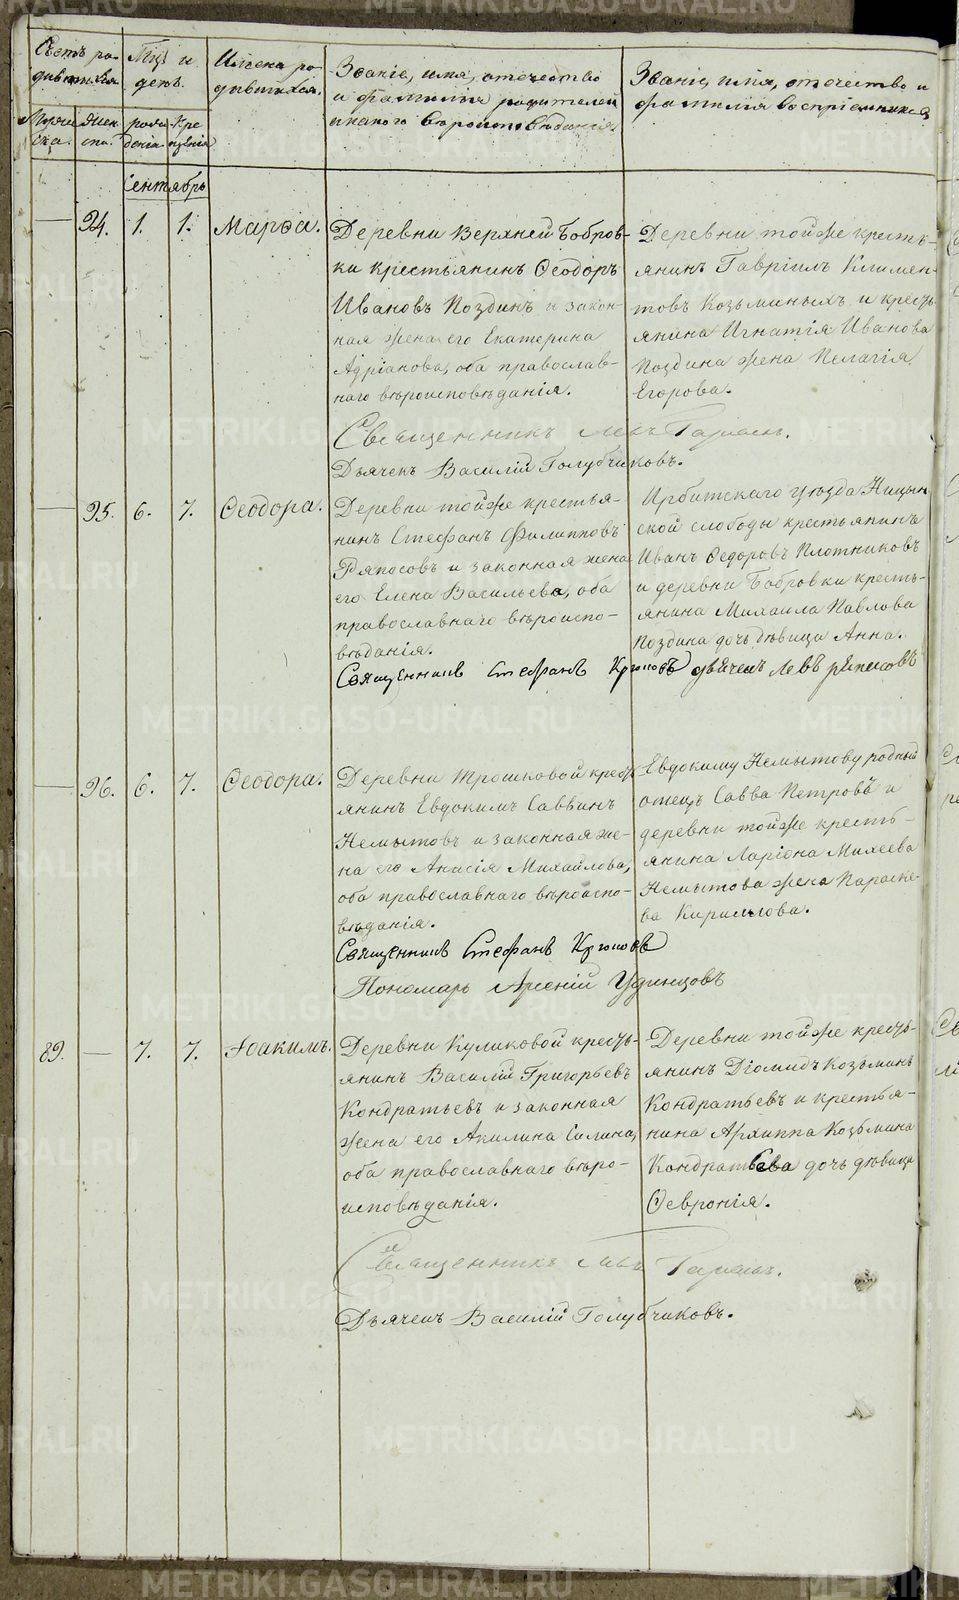 Счетъ ро-
дившихся.
Мужес-
ка.
Женс-
ка.
Мцъ и
день.
рож-
денія
Кре-
щенія
Имена ро-
дившихся.
Званіе, имя, отчество
и фамилія родителей
и какого вѣроисповѣданія.
Званіе, имя, отчество и
фамилія воспріемниковъ
Сентябрь
94. 1. 1. Марѳа.
Деревни Верхней Бобров-
ки крестьянинъ Ѳеодоръ
Ивановъ Поздинъ и закон-
ная жена его Екатерина
Адріанова, оба православ-
наго вѣроисповѣданія.
Деревни тойже кресть-
янинъ Гавріилъ Климен-
товъ Козьминыхъ и кресть-
янина Игнатія Иванова
Поздина жена Пелагія
Егорова.
Священникъ Левъ
Дьячекъ Василій Голубчиковъ.
95. 6. 7. Ѳеодора.
Деревни тойже крестья-
нинъ Стефанъ Филипповъ
Ряпосовъ и законная жена
его Елена Васильева, оба
православнаго вѣроиспо-
вѣданія.
Ирбитскаго уѣзда Ницын-
ской слободы крестьянинъ
Иванъ Ѳедоровъ Плотниковъ
и деревни Бобровки кресть-
янина Михаила Павлова
Поздина дочь дѣвица Анна.
Священникъ Стефанъ дьячекъ Левъ Ряпосовъ
96. 6. 7. Ѳеодора.
Деревни Трошковой кресть-
янинъ Евдокимъ Саввинъ
Немытовъ и законная же-
на его Анисія Михайлова,
оба православнаго вѣроиспо-
вѣданія.
Евдокиму Немытову родный
отецъ Савва Петровъ и
деревни тойже кресть-
янина Ларіона Михеева
Немытова жена Параске-
ва Кирилова.
Священникъ Стефанъ
Пономарь Арсеній Удинцовъ
89. 7. 7. Іоакимъ.
Деревни Куликовой кресть-
янинъ Василій Григорьевъ
Кондратьевъ и законная
жена его Акилина Силина,
оба православнаго вѣро-
исповѣданія.
Деревни тойже кресть-
янинъ Діомидъ Козьминъ
Кондратьевъ и крестья-
нина Архиппа Козьмина
Кондратьева дочь дѣвица
Ѳевронія.
Священникъ Левъ
Дьячекъ Василій Голубчиковъ.
METRIKI.GASO-URAL.RU